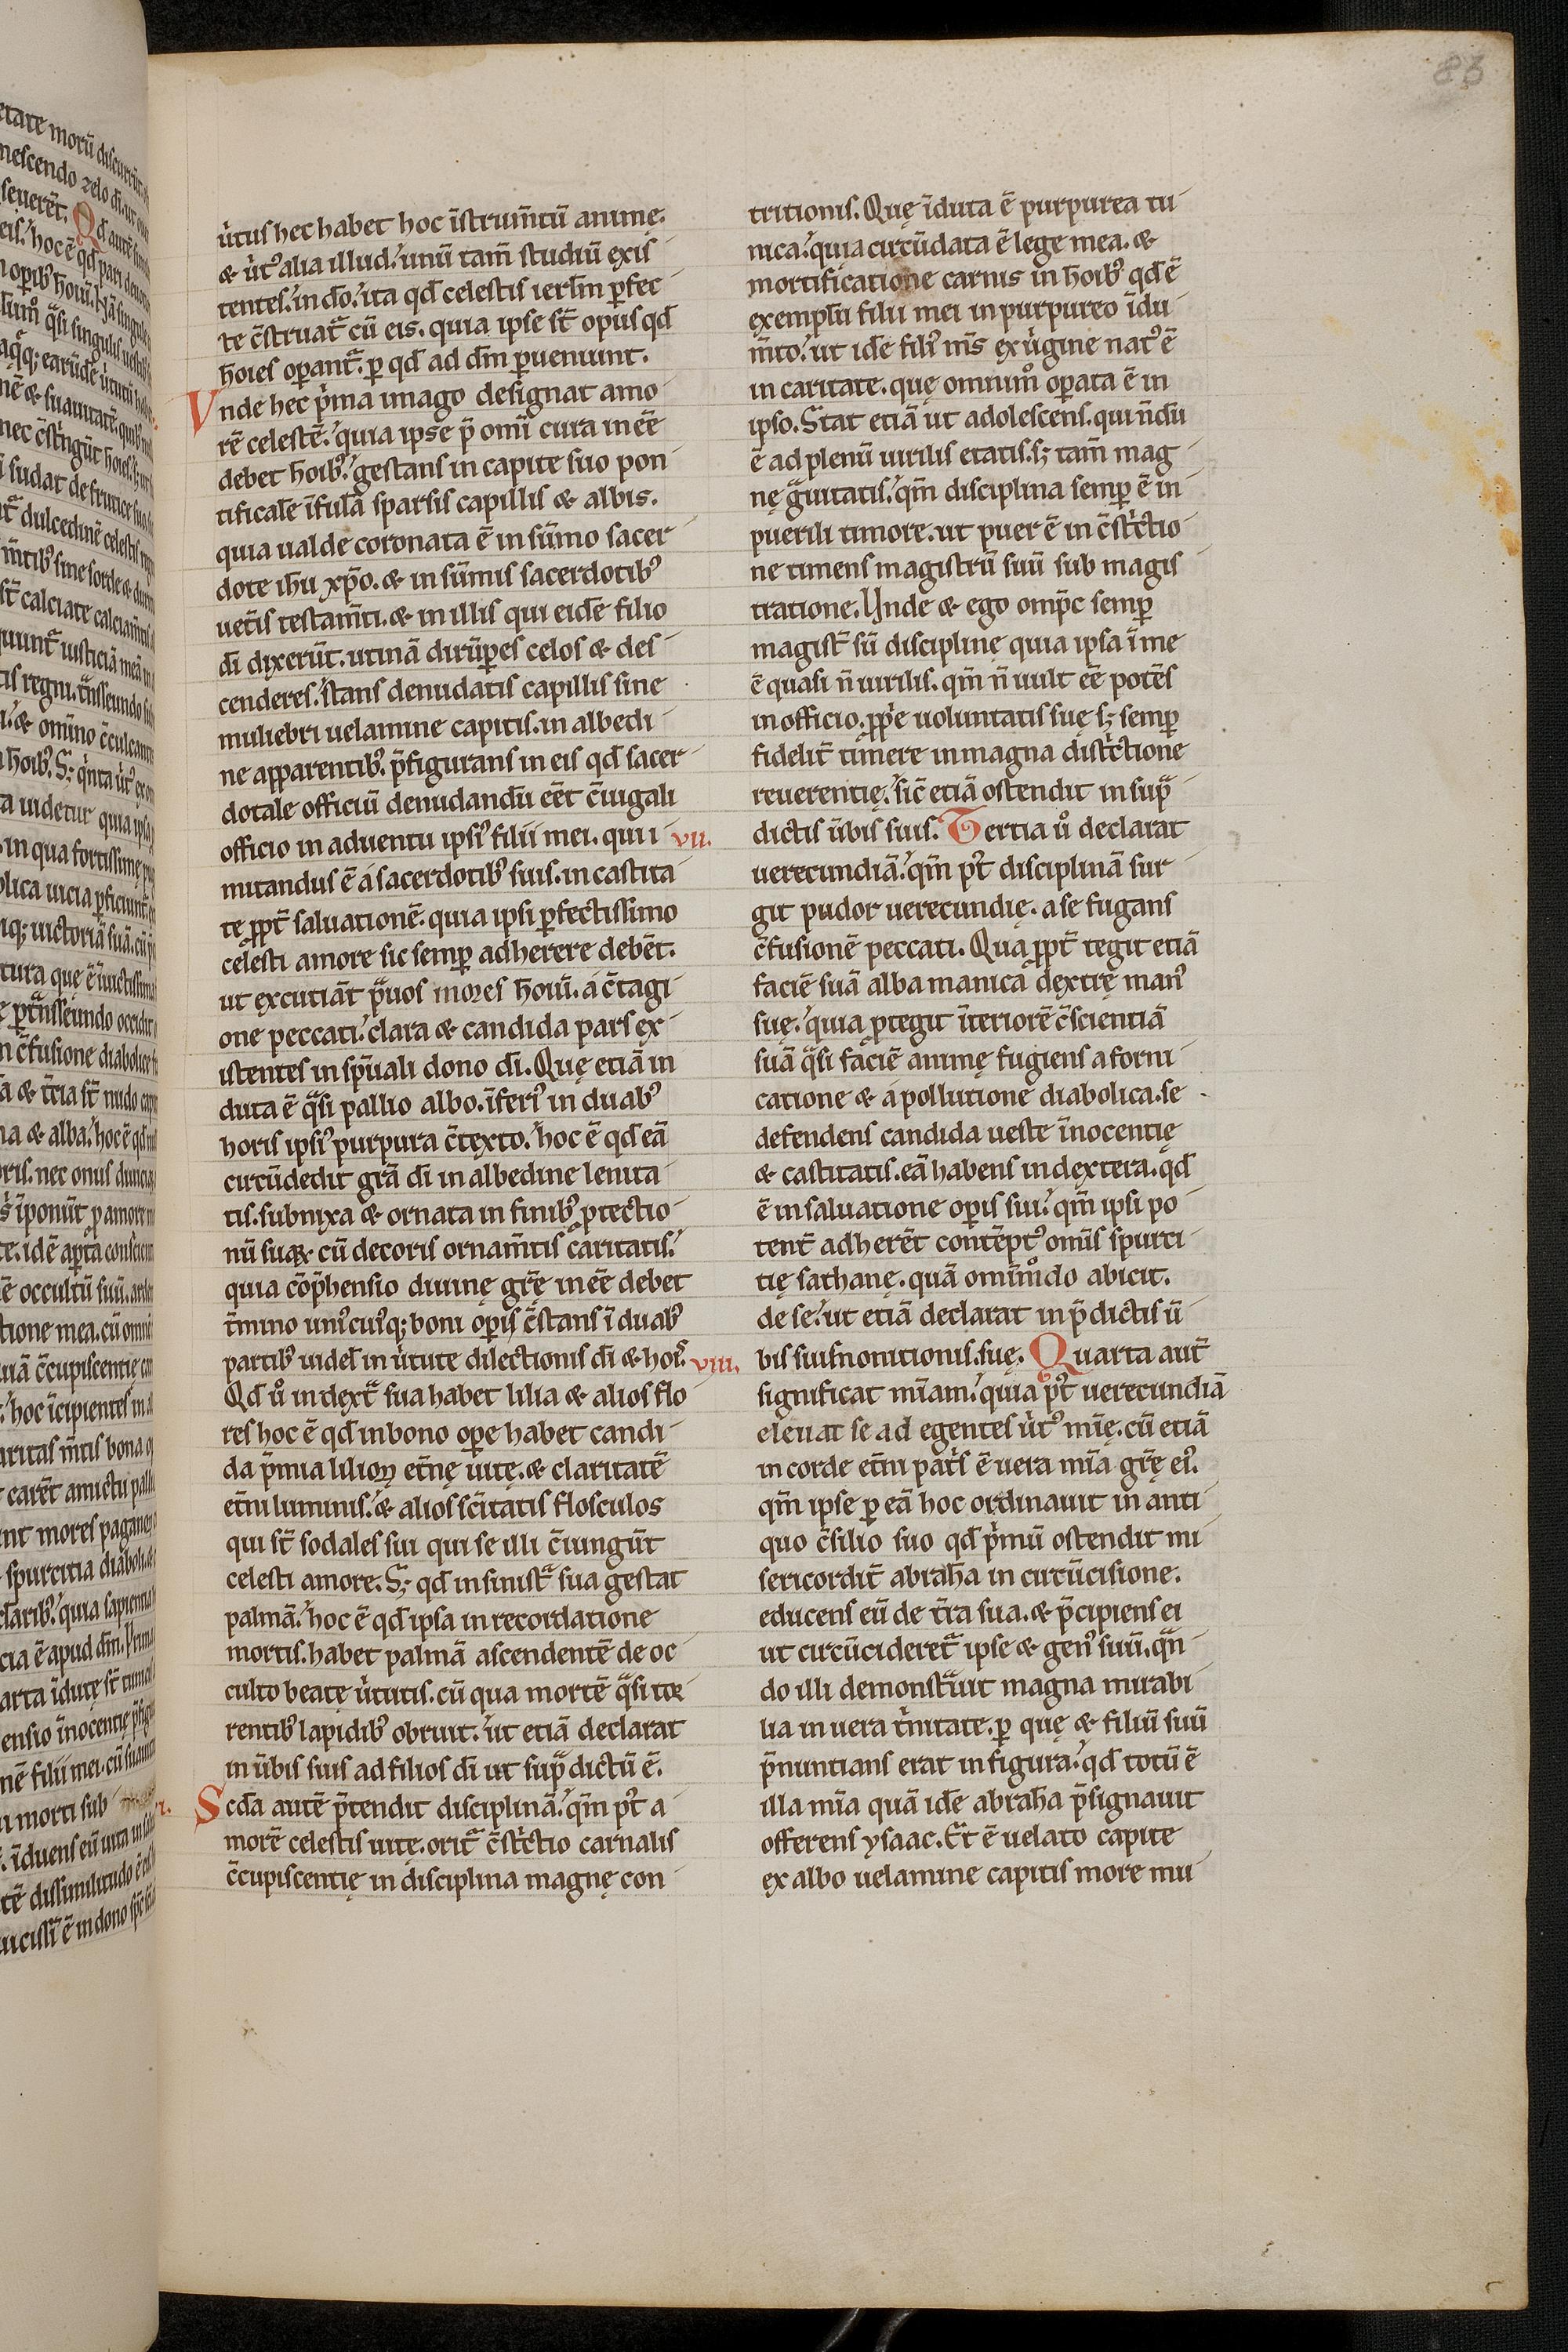 83
u̇tus hec habet hoc īstrum̄tū animę.
& u̇tꝰ alia illud.ʼ unū tam̄ studiū exis
tentes.ʼ in dō.ʼ ita qđ celestis ierl̄m ꝑfec
te c̄struat᷑ cū eis. quia ipse st̄ opus qđ
hōies oꝑant᷑. ꝑ qđ ad dm̄ ꝑueniunt.
Vnde hec p̄ma imago designat amo
rē celestē.ʼ quia ipse p̄ omī cura inēē
debet hōibꝰ.ʼ gestans in capite suo pon
tificalē īfulā sparsis capillis & albis.
quia ualde coronata ē in sūmo sacer
dote ih̄u xp̄o. & in sūmis sacerdotibꝰ
uet̄is testam̄ti. & in illis qui eidē filio
dī dixerūt. utinā dirūꝑes celos & des
cenderes.ʼ stans denudatis capillis sine
muliebri uelamine capitis. in albedi
ne apparentibꝰ. p̄figurans in eis qđ sacer
dotale officiū denudandū eēt c̄iugali
officio in aduentu ipsiꝰ filii mei. qui i
mitandus ē á sacerdotibꝰ suis. in castita
te ꝓpt̄ saluationē. quia ipsi ꝑfectissimo
celesti amore sic semꝑ adherere debēt.
ut excutiāt p̄uos mores hōiū. á c̄tagi
one peccati.ʼ clara & candida pars ex
istentes in sp̄uali dono dī. Quę etiā in
duta ē q̄si pallio albo. īferiꝰ in duabꝰ
horis ipsiꝰ purpura c̄texto.ʼ hoc ē qđ eā
circūdedit grā dī in albedine lenita
tis. subnixa & ornata in finibꝰ ꝓtectio
nū suaꝝ cū decoris ornam̄tis caritatis.ʼ
quia cōp̄hensio diuinę grę̄ ineē debet
t̄mino uniꝰcuiꝰqꝫ boni oꝑis c̄stans ī duabꝰ
partibꝰ uidel̄ in u̇tute dilectionis dī & hoīs.
Qđ u̇o in dext᷑ sua habet lilia & alios flo
res hoc ē qđ in bono oꝑe habet candi
da p̄mia lilioꝝ et̄nę uitę. & claritatē
et̄ni luminis.ʼ & alios sc̄itatis flosculos
qui st̄ sodales sui qui se illi c̄iungūt
celesti amore. Sꝫ qđ in sinist᷑ sua gestat
palmā.ʼ hoc ē qđ ipsa in recordatione
mortis. habet palmā ascendentē de oc
culto beatę u̇tutis. cū qua mortē q̄si toꝛ
rentibꝰ lapidibꝰ obruit.ʼ ut etiā declarat
in u̇bis suis ad filios dī ut sup̄ dictū ē.
Scđa autē p̄tendit disciplinā.ʼ qm̄ pꝰt a
morē celestis uitę. orit᷑ c̄sṫctio carnalis
c̄cupiscentię in disciplina magnę con
tritionis. Quę īduta ē purpurea tu
nica.ʼ quia circūdata ē lege mea. &
mortificatione carnis in hōibꝰ qđ ē
exemplū filii mei in purpureo īdu
m̄to.ʼ ut idē filiꝰ m̄s ex u̇gine natꝰ ē
in caritate. quę omniūm oꝑata ē in
ipso. Stat etiā ut adolescens. qui n̄dū
ē ad plenū uirilis etatis. sꝫ tam̄ mag
nę g̊uitatis.ʼ qm̄ disciplina semꝑ ē in
puerili timore. ut puer ē in c̄sṫctio
ne timens magistrū suū sub magis
tratione. Unde & ego omp̄c semꝑ
magist̄ sū disciplinę quia ipsa ī me
ē quasi n̄ uirilis. qm̄ n̄ uult ēē potēs
in officio. ꝓp̄e uoluntatis suę sꝫ semꝑ
fidelit̄ timere in magna disṫctione
reuerentię.ʼ sic̄ etiā ostendit in sup̄
dictis u̇bis suis.ʼ vii. Tertia u̇o declarat
uerecundiā.ʼ qm̄ pꝰt disciplinā sur
git pudor uerecundię. a se fugans
c̄fusionē peccati. Quaꝓpt̄ tegit etiā
faciē suā alba manica dextrę manꝰ
suę.ʼ quia ꝓtegit īteriorē c̄scientiā
suā q̄si faciē animę fugiens a forni
catione & á pollutione diabolica. se
defendens candida ueste īnocentię
& castitatis. eā habens in dextera. qđ
ē in saluatione oꝑis sui.ʼ qm̄ ipsi po
tent̄ adherēt contēptꝰ omīs spurci
tię sathanę. quā omīmodo abicit.
de se.ʼ ut etiā declarat in p̄dictis ū
bis suis monitionis suę. viii. Quarta aut̄
significat mīam.ʼ quia pꝰt uerecundiā
eleuat se ad egentes u̇tꝰ mīę. cū etiā
in corde et̄ni pat̄s ē uera mīa grę̄ eiꝰ.
qm̄ ipse ꝑ eā hoc ordinauit in anti
quo c̄silio suo qđ p̄mū ostendit mi
sericordit̄ abrahā in circūcisione.
educens eū de t̄ra sua. & p̄cipiens ei
ut circūcideret᷑ ipse & genꝰ suū. qn̄
do illi demonst᷑uit magna mirabi
lia in uera t̄nitate. ꝑ quę & filiū suū
p̄nuntians erat in figura.ʼ qđ totū ē
illa mīa quā idē abrahā p̄signauit
offerens ysaac. Et ē uelato capite
ex albo uelamine capitis more mu